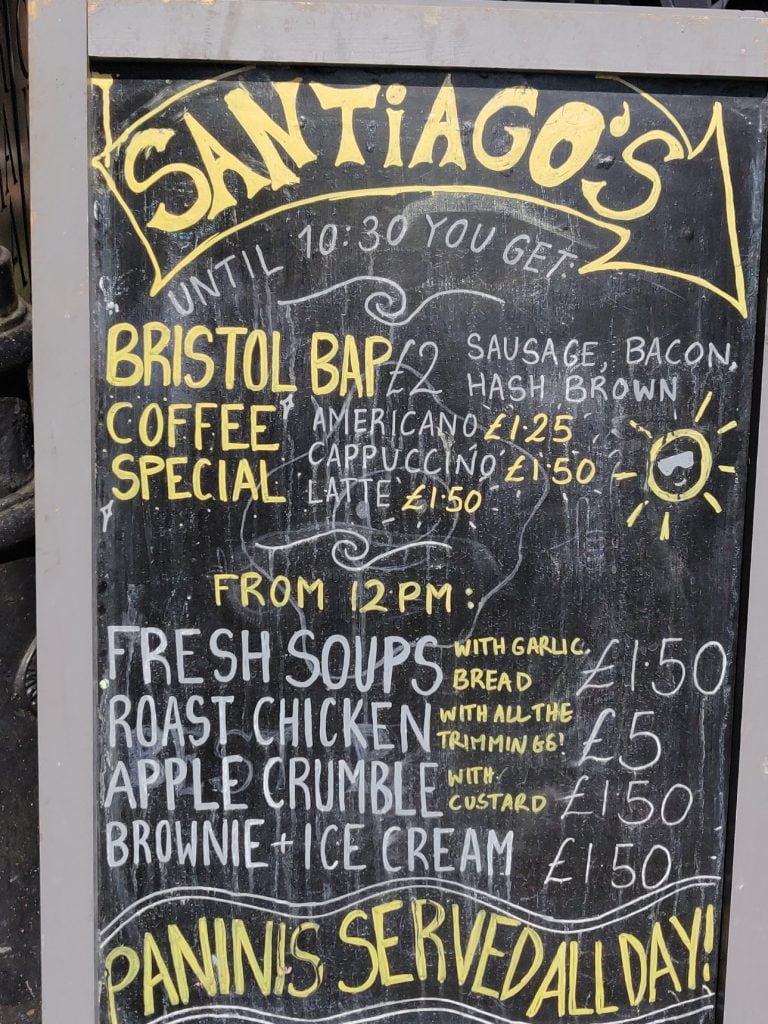 SANTiAGO'S
UNTIL 10:30 YOU GET:
BRISTOL BAP £2 SAUSAGE, BACON,
HASH BROWN
COFFEE AMERICANO £1.25
SPECIAL CAPPUCCINO £1.50
LATTE £1.50
FROM 12PM:
FRESH SOUPS WITH GARLIC BREAD £1.50
ROAST CHICKEN WITH ALL THE TRIMMINGS! £5
APPLE CRUMBLE WITH CUSTARD £1.50
BROWNIE + ICE CREAM £1.50
PANINIS SERVED ALL DAY!